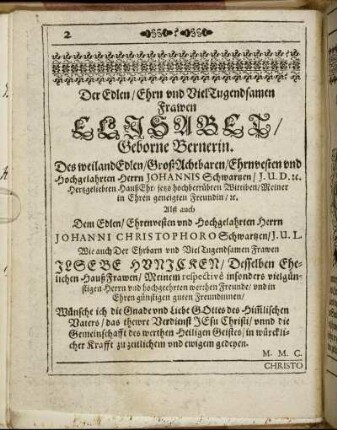 2
Der Edlen/ Ehrn vnd VielTugendsamen
Frawen
ELISABET/
Geborne Bernerin.
Des weiland Edlen/ GroßAchtbaren/ Ehrnvesten vnd
Hochgelahrten Herrn JOHANNIS Schwartzen/ J. U. D. ꝛc.
Hertzgeliebten HaußEhr jetzo hochbetrübten Witiben/ Meiner
in Ehren geneigten Freundin/ ꝛc.
Alß auch
Dem Edlen/ Ehrenvesten vnd Hochgelahrten Herrn
JOHANNI CHRISTOPHORO Schwartzen/ J. U. L.
Wie auch Der Ehrbarn vnd VielTugendsamen Frawen
ILSEBE HVNICKEN/ Desselben Ehe-
lichen HaußFrawen/ Meinem respectivè insonders vielgün-
stigen Herrn vnd hochgeehrten werthen Freunde/ vnd in
Ehren günstigen guten Freundinnen/
Wünsche ich die Gnade vnd Liebe GOttes des Him̃lischen
Vaters/ das thewre Verdienst JEsu Christi/ vnnd die
Gemeinschafft des werthen Heiligen Geistes/ in würckli-
cher Krafft zu zeitlichem vnd ewigem gedeyen.
M. M. C.
CHRISTO